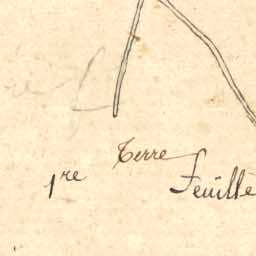 Terre
1re Feuille